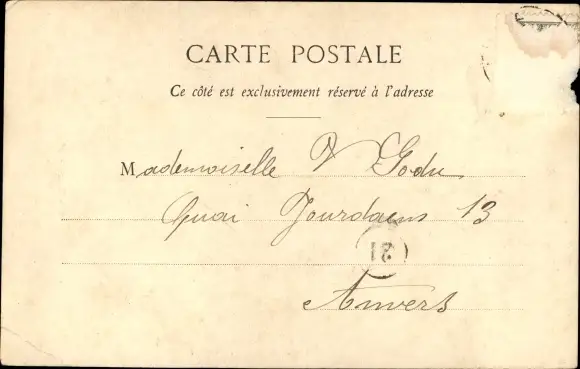 CARTE POSTALE
Ce côté est exclusivement réservé à l'adresse
Mademoiselle V Godu
Quai Jourdaens 13
Anvers